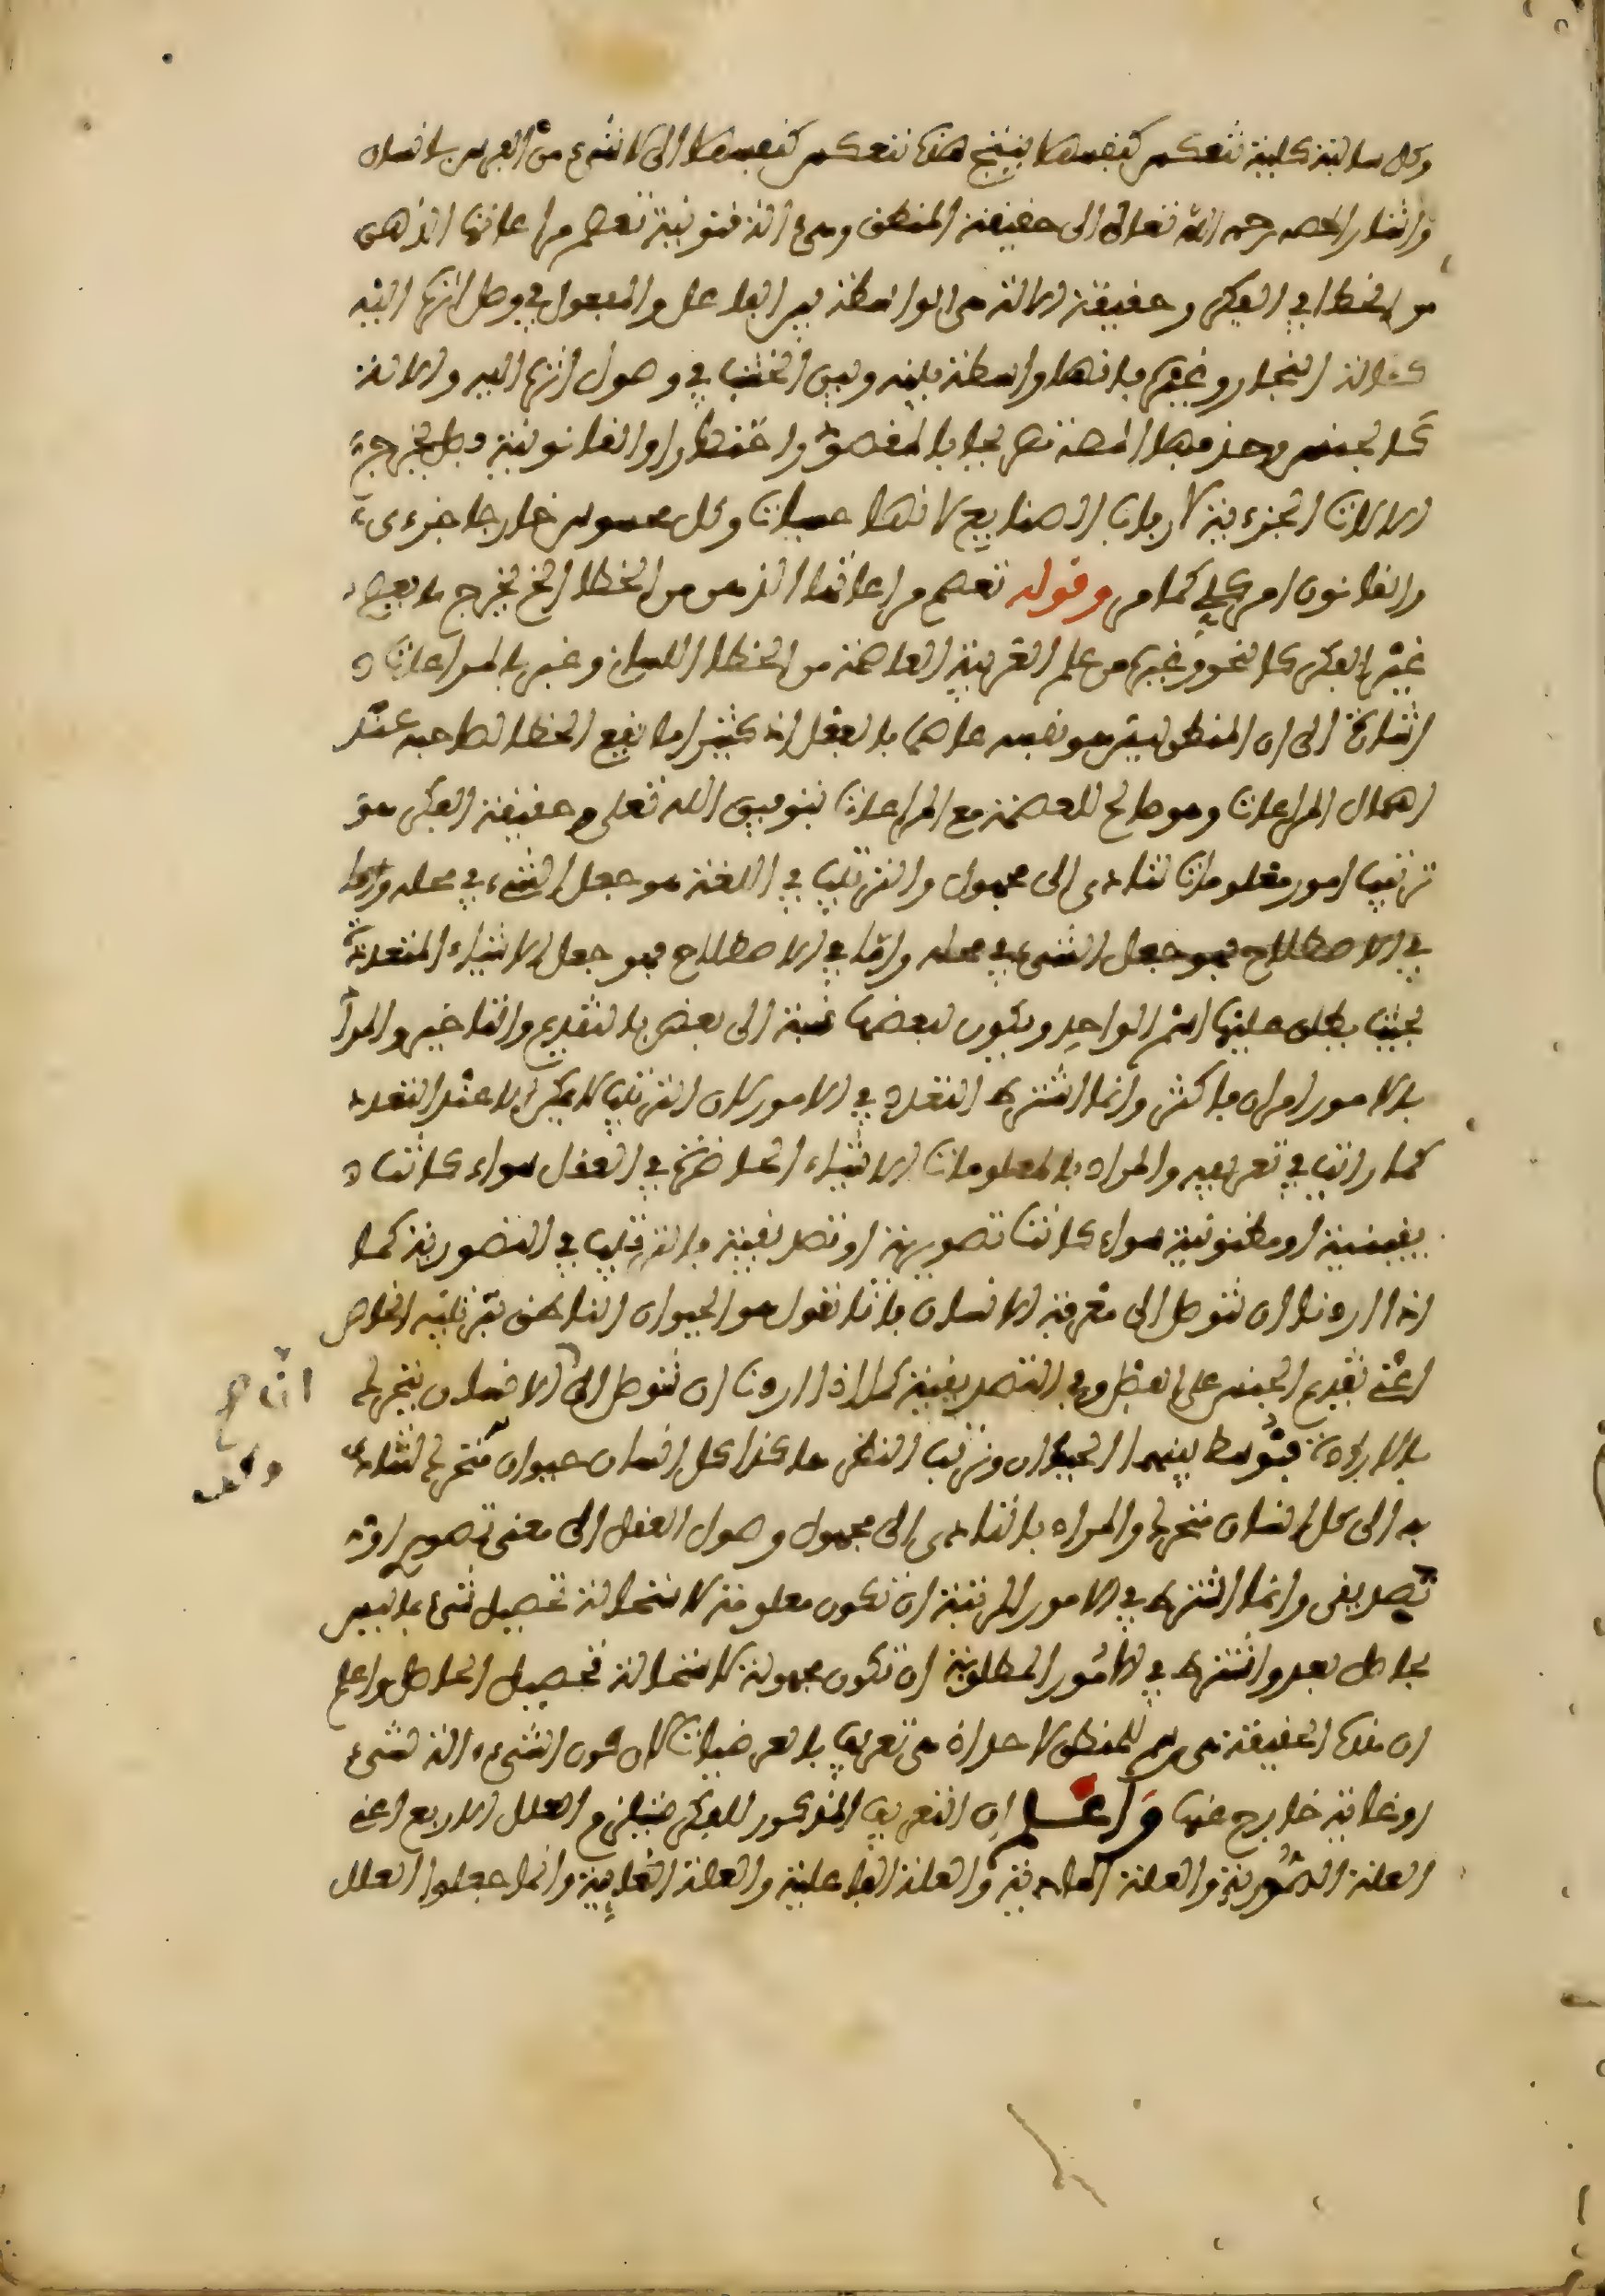 وكل سالبة كلية تنعكس كنفسها ينتج هذه تنعكس كنفسها الى لا شيء من الفرس بانسان
واشار المص رحمه الله تعالى الى حقيقة المنطق وهي الة قانونية تعصم مراعاتها الذهن
من الخطا في الفكر وحقيقة الالة هي الواسطة بين الفاعل والمفعول في وصول اثره اليه
كالة النجار وغيره فانها واسطة بينه وبين الخشب في وصول اثره اليه والالة
كالجنس وحذفها المص
الالات الجزءية لارباب الصنايع لانها حسيات وكل محسوس خارجا جزءي
والقانون امر كلي كما مر وقوله تعصم مراعاتها الذهن من الخطا الخ يخرج ما يعصم
غير الفكر كالنحو وغيره من علم العربية العاصمة من الخطا اللسان وعبر بالمراعات
اشارة الى ان المنطق ليس هو نفسه عاصما بالفعل اذ كثيرا ما يقع الخطا لصاحبه عند
اهمال المراعات وهو صالح للعصمة مع المراعات بتوفيق الله تعلى وحقيقة الفكر هو
ترتيب امور معلومات لتادي الى مجهول والترتيب في اللغة هو جعل الشيء في محله واما
في الاصطلاح فهو جعل الشيء في محله واما في الاصطلاح فهو جعل الاشياء المتعددة
بحيث يطلق عليها اسم الواحد ويكون لبعضها نسبة الى بعض بالتقديم والتاخير والمراد
بالامور امران فاكثر وانما اشترط التعدد في الامور لان الترتيب لا يمكن الا عند التعدد
كما رايت في تعريفه والمراد بالمعلومات الاشياء الحاضرة في العقل سواء كانت
يقينية او مظنونية سواء كانت تصورية او تصديقية فالترتيب في التصورية كما
اذا اردنا ان نتوصل الى معرفة الانسان فانا نقول هو الحيوان الناطق بترتيبه الخاص
اعني تقديم الجنس على الفصل وفي التصديقية كما اذا اردنا ان نتوصل الى ان الانسان يتحرك
بالارادة فنوسط بينهما الحيوان ونرتب النظر هاكذا كل انسان حيوان متحرك لتتادي
به الى كل انسان متحرك والمراد بالتادي الى مجهول وصول العقل الى معنى تصوري او
تصديقي وانما اشترط في الامور المرتبة ان تكون معلومة لاستحالة تحصيل شيء بما ليس
بحاصل بعد واشترط في الامور المطلوبة ان تكون مجهولة لاستحالة تحصيل الحاصل واعلم
ان هذه الحقيقة هي رسم للمنطق لا حد اذ هي تعريف بالعرضيات لان كون الشيء الة لشيء
او غاية خارج عنها واعلم ان التعريف المذكور للفكر يستلزم العلل الاربع اعني
العلة الصورية والعلة المادية والعلة الفاعلية والعلة الغايية وانما جعلوا العلل